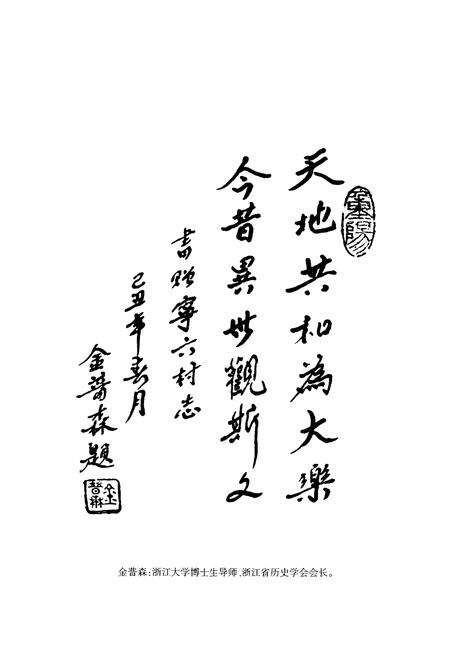 天地共和為大樂
今昔異世觀斯文
書贈寧六村志
己丑年春月
金普森題
金普森
金普森:浙江大学博士生导师、浙江省历史学会会长。